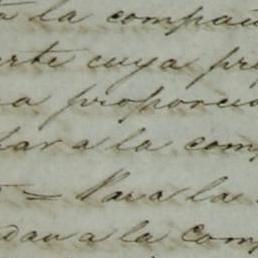 a la compañ
rte cuya pr
a proporcio
par a la comp
= Para la
dan a la Comp